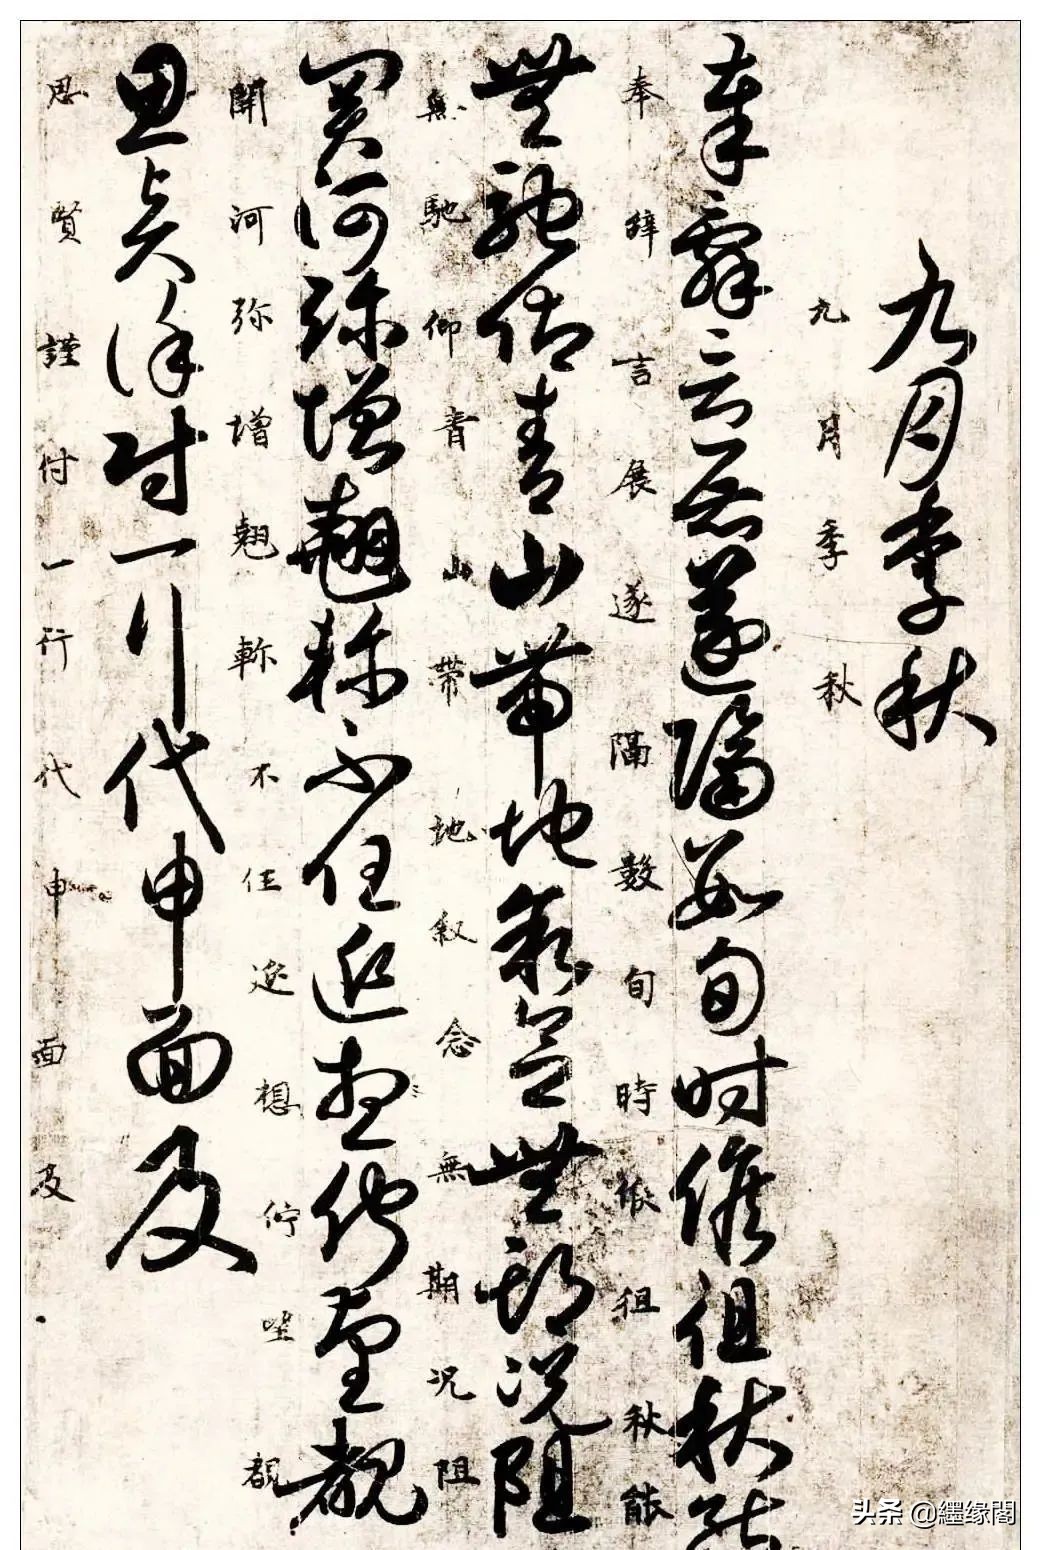 九月季秋
九月季秋
奉辭言展遂隔數旬時候徂秋能
奉辝言展遂隔數旬時候徂秋能
無馳仰青山帶地叙念無期況阻
無馳仰青山帶地叙念無期况阻
關河弥增翹軫不任延想佇望覩
開河弥增翘軫不任延想佇望覩
思賢謹付一行代申面及
思賢謹付一行代申面及
头条 @纆缘閣